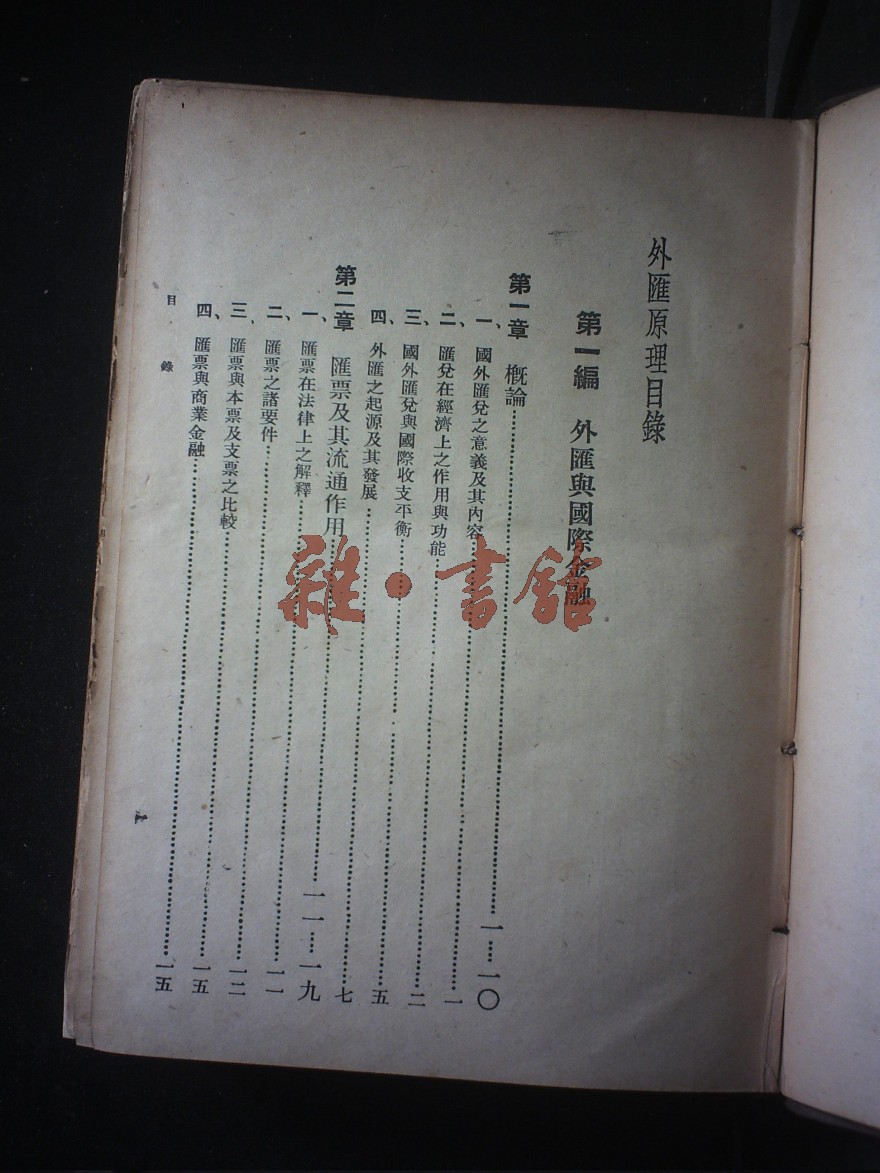 外匯原理目錄
第一編 外匯與國際金融
第一章 概論……一……一〇
一、國外匯兌之意義及其內容……一
二、匯兌在經濟上之作用與功能……二
三、國外匯兌與國際收支平衡……五
四、外匯之起源及其發展……七
第二章 匯票及其流通作用……一一……一九
一、匯票在法律上之解釋……一一
二、匯票之諸要件……一二
三、匯票與本票及支票之比較……一五
四、匯票與商業金融……一五
目錄
雜·書館